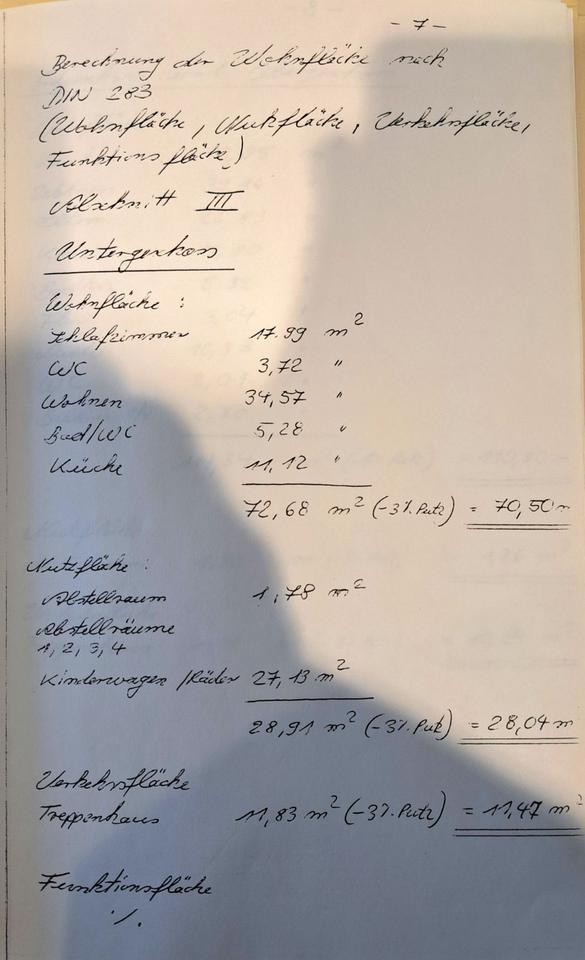 - 7 -
Berechnung der Wohnfläche nach
DIN 283
(Wohnfläche, Nutzfläche, Verkehrsfläche,
Funktionsfläche)
Abschnitt III
Untergeschoss
Wohnfläche :
Schlafzimmer 17.99 m²
WC 3,72 "
Wohnen 34,57 "
Bad/WC 5,28 "
Küche 11,12 "
72,68 m² (-3% Putz) = 70,50 m
Nutzfläche :
Abstellraum 1,78 m²
Abstellräume
1, 2, 3, 4
Kinderwagen /Räder 27,13 m²
28,91 m² (-3% Putz) = 28,04 m
Verkehrsfläche
Treppenhaus 11,83 m² (-3% Putz) = 11,47 m²
Funktionsfläche
·/.